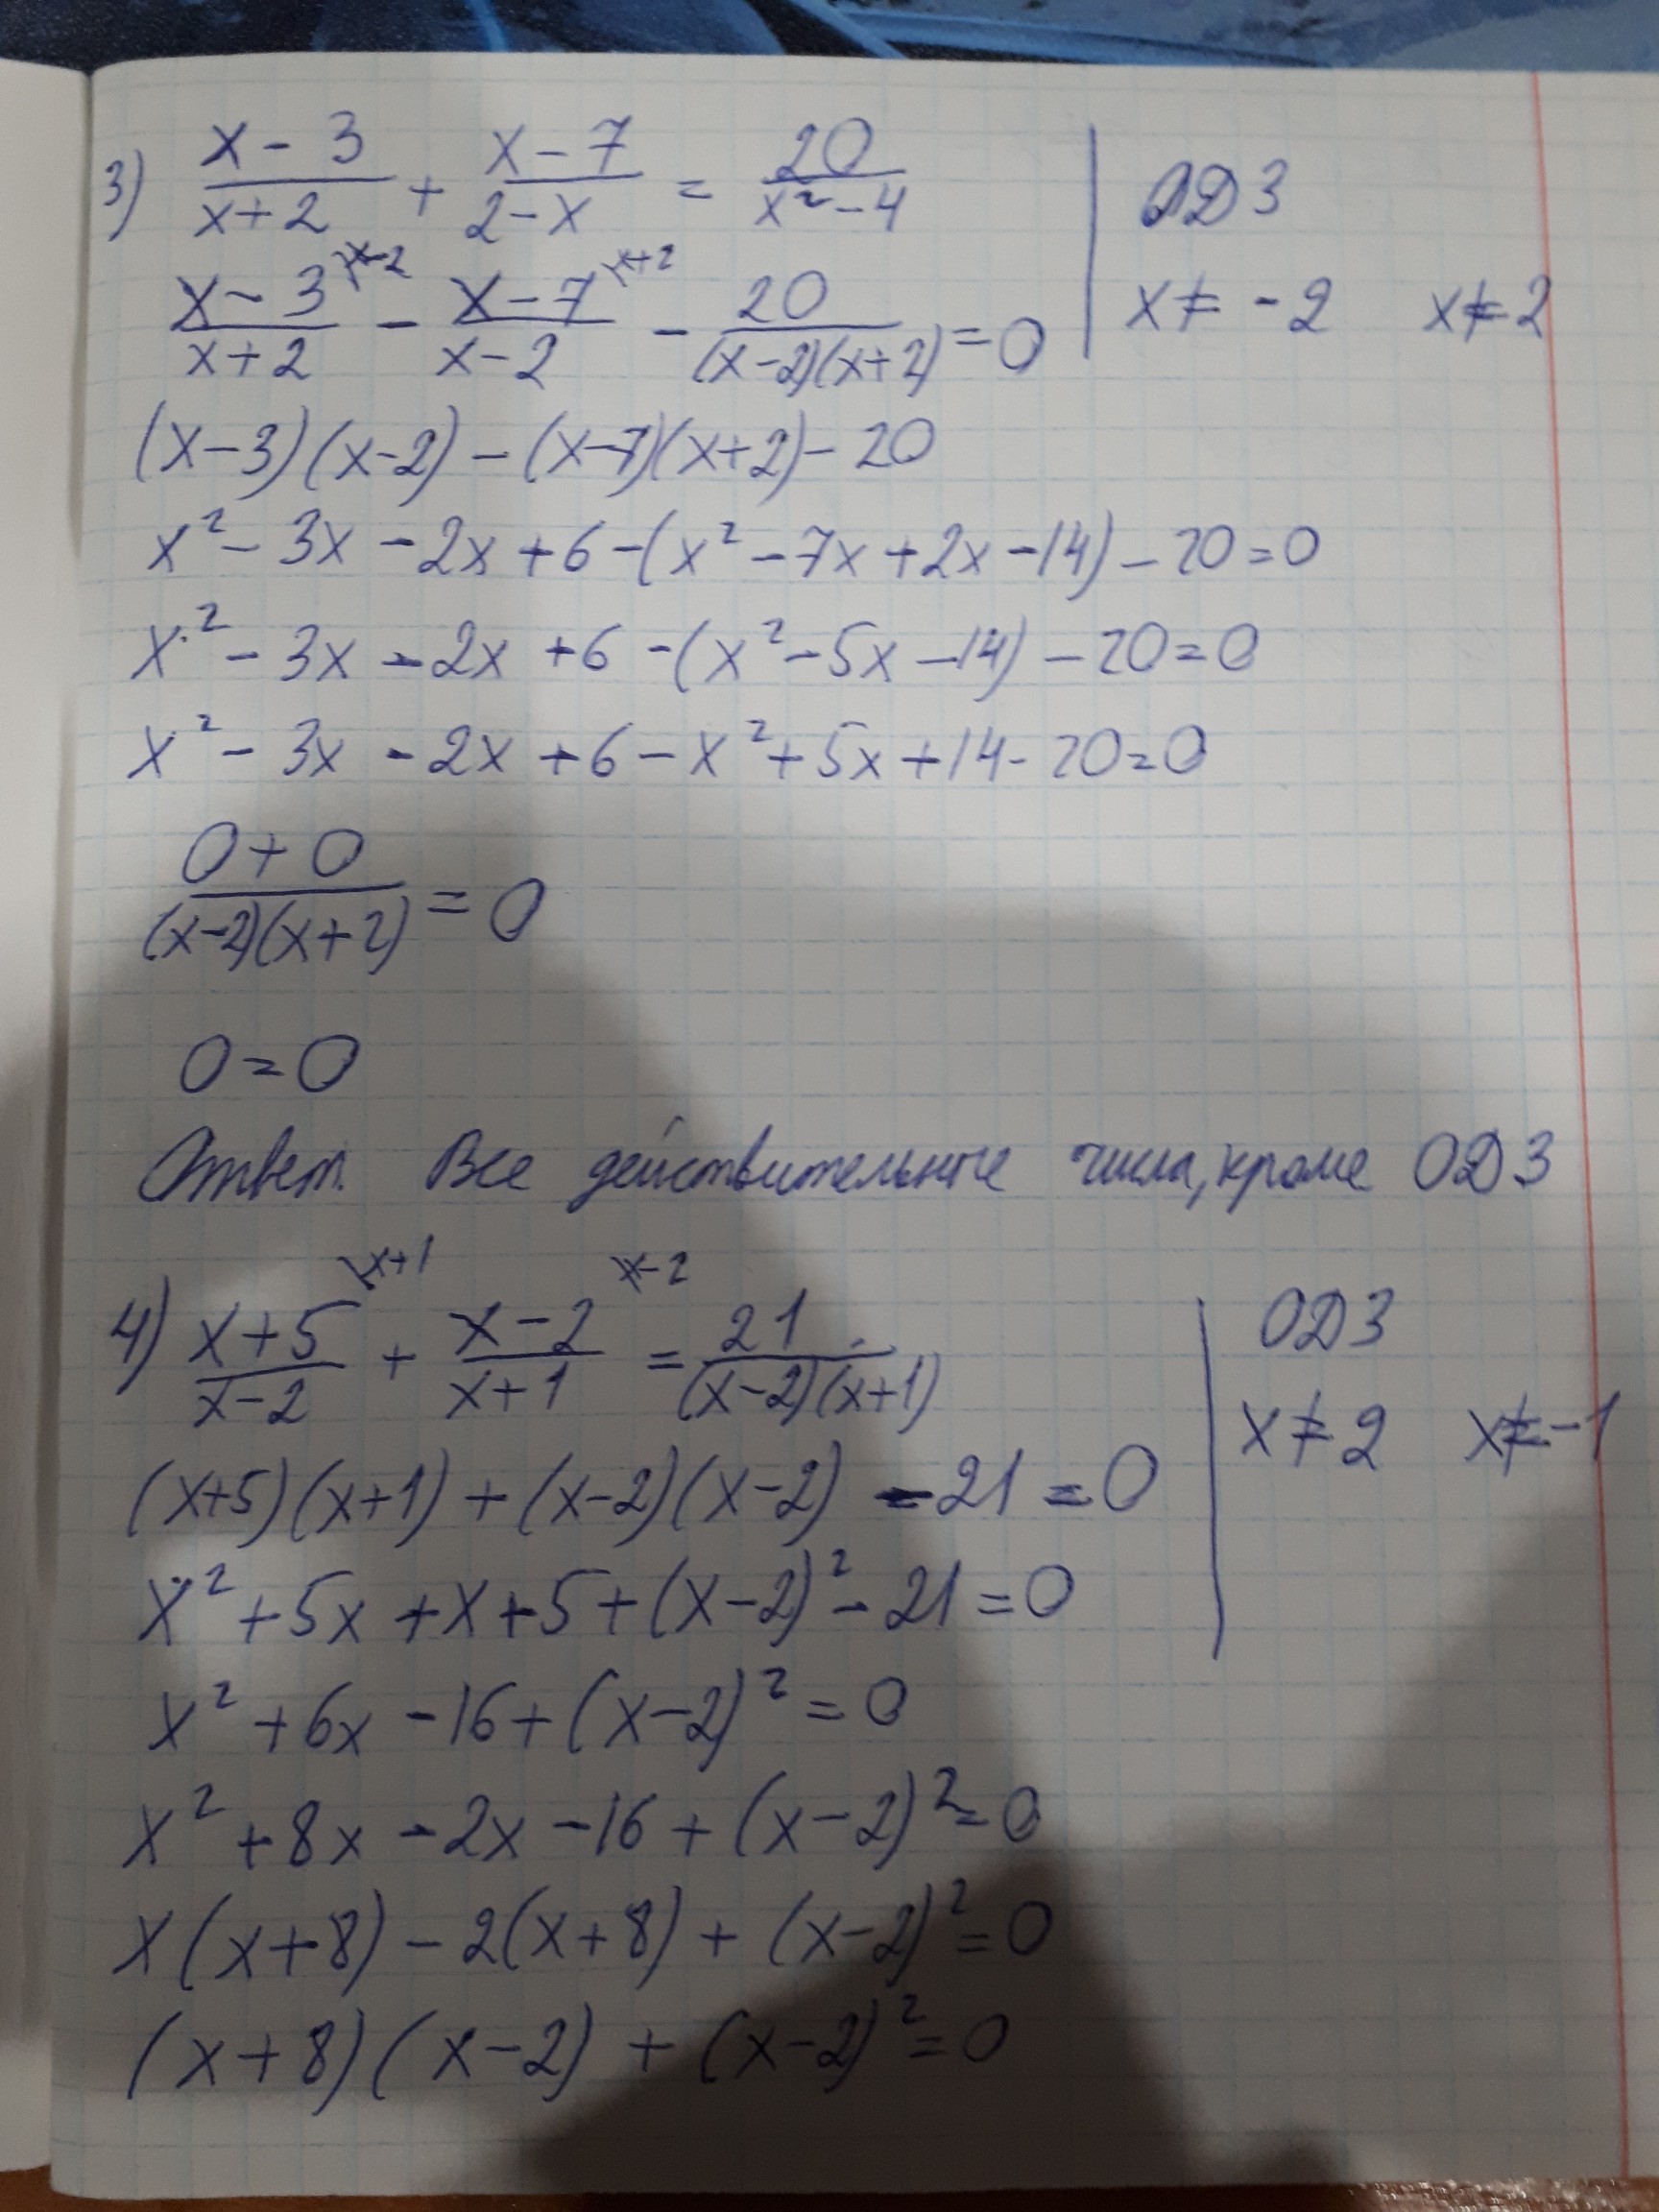 3) (x-3)/(x+2) + (x-7)/(2-x) = 20/(x²-4) | ОДЗ
(x-3)\x-2/(x+2) - (x-7)\x+2/(x-2) - 20/((x-2)(x+2)) = 0 | x≠-2 x≠2
(x-3)(x-2)-(x-7)(x+2)-20
x²-3x-2x+6-(x²-7x+2x-14)-20=0
x²-3x-2x+6-(x²-5x-14)-20=0
x²-3x-2x+6-x²+5x+14-20=0
(0+0)/((x-2)(x+2)) = 0
0=0
Ответ. Все действительные числа, кроме ОДЗ
4) (x+5)\x+1/(x-2) + (x-2)\x-2/(x+1) = 21/((x-2)(x+1)) | ОДЗ
x≠2 x≠-1
(x+5)(x+1)+(x-2)(x-2)-21=0
x²+5x+x+5+(x-2)²-21=0
x²+6x-16+(x-2)²=0
x²+8x-2x-16+(x-2)²=0
x(x+8)-2(x+8)+(x-2)²=0
(x+8)(x-2)+(x-2)²=0